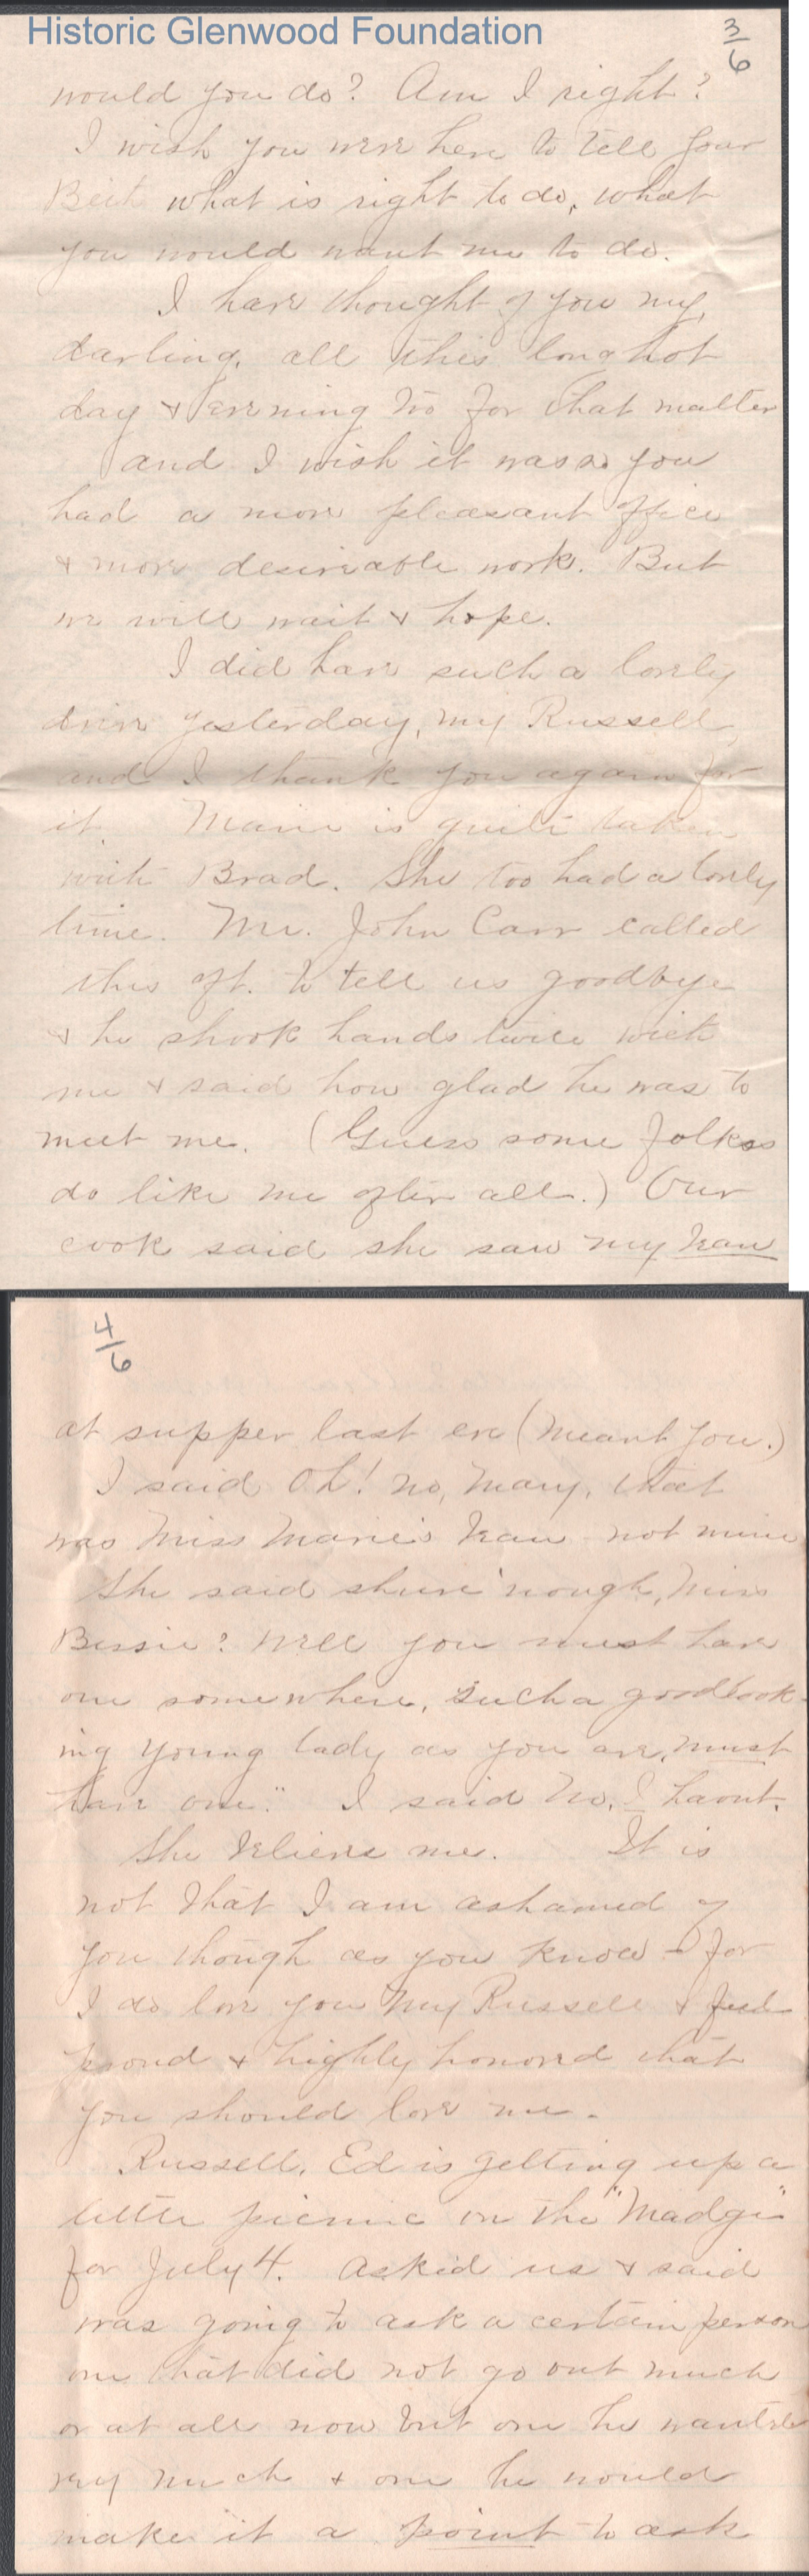 Historic Glenwood Foundation
3/6
would you do? Am I right?
I wish you were here to tell your
what is right to do, what
you would want me to do.
I have thought of you my
darling, all this long hot
day & evening too for that matter
and I wish it was so you
had a more pleasant office
& more desireable work. But
we will wait & hope.
I did have such a lovely
drive yesterday, my Russell,
and I thank you again for
it. Marie is quite taken
with Brad. She too had a lovely
time. Mr. John Carr called
this aft. to tell us goodbye
& he shook hands twice with
me & said how glad he was to
meet me. (Guess some folks
do like me after all.) Our
cook said she saw my beau
4/6
at supper last eve (meant you.)
I said Oh! no, Mary, that
was Miss Marie's beau not mine
She said shure 'nough, Miss
Bessie? Well you must have
one somewhere, such a goodlook-
ing young lady as you are, must
have one." I said No, I havnt.
She believe me. It is
not that I am ashamed of
you though as you know - for
I do love you my Russell & feel
proud & highly honored that
you should love me.
Russell, Ed is getting up a
little picnic on the "Madge"
for July 4. Asked us & said
was going to ask a certain person
one that did not go out much
or at all now but one he wanted
very much & one he would
make it a point to ask